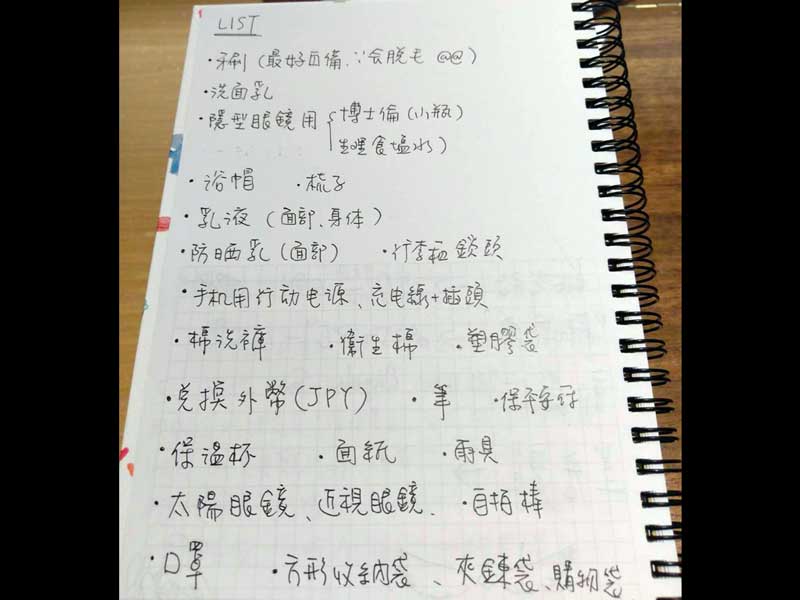 LIST
·牙刷(最好自備,∵会脱毛 @@)
·洗面乳
·隱型眼鏡用{博士倫(小瓶)
生理食塩水)
·浴帽 ·梳子
·乳液(面部、身体)
·防晒乳(面部) ·行李箱鎖頭
·手机用行动电源、充电線+插頭
·棉洗褲 ·衛生棉 ·塑膠袋
·兌換外幣(JPY) ·筆 ·保平安符
·保温杯 ·面紙 ·雨具
·太陽眼鏡、近視眼鏡. ·自拍棒
·口罩 ·方形收納袋、夾鍊袋、購物袋